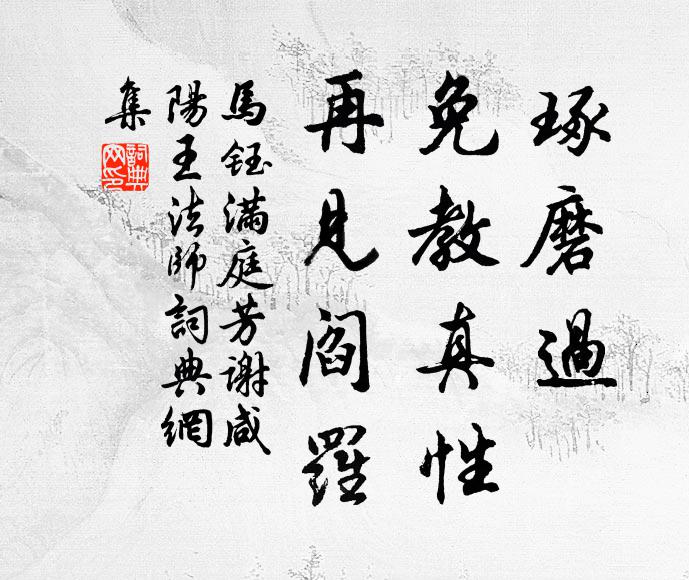 琢磨過
免教真性
再見閻羅
馬鈺滿庭芳謝咸
陽王法師詞典網
集
詞典網印